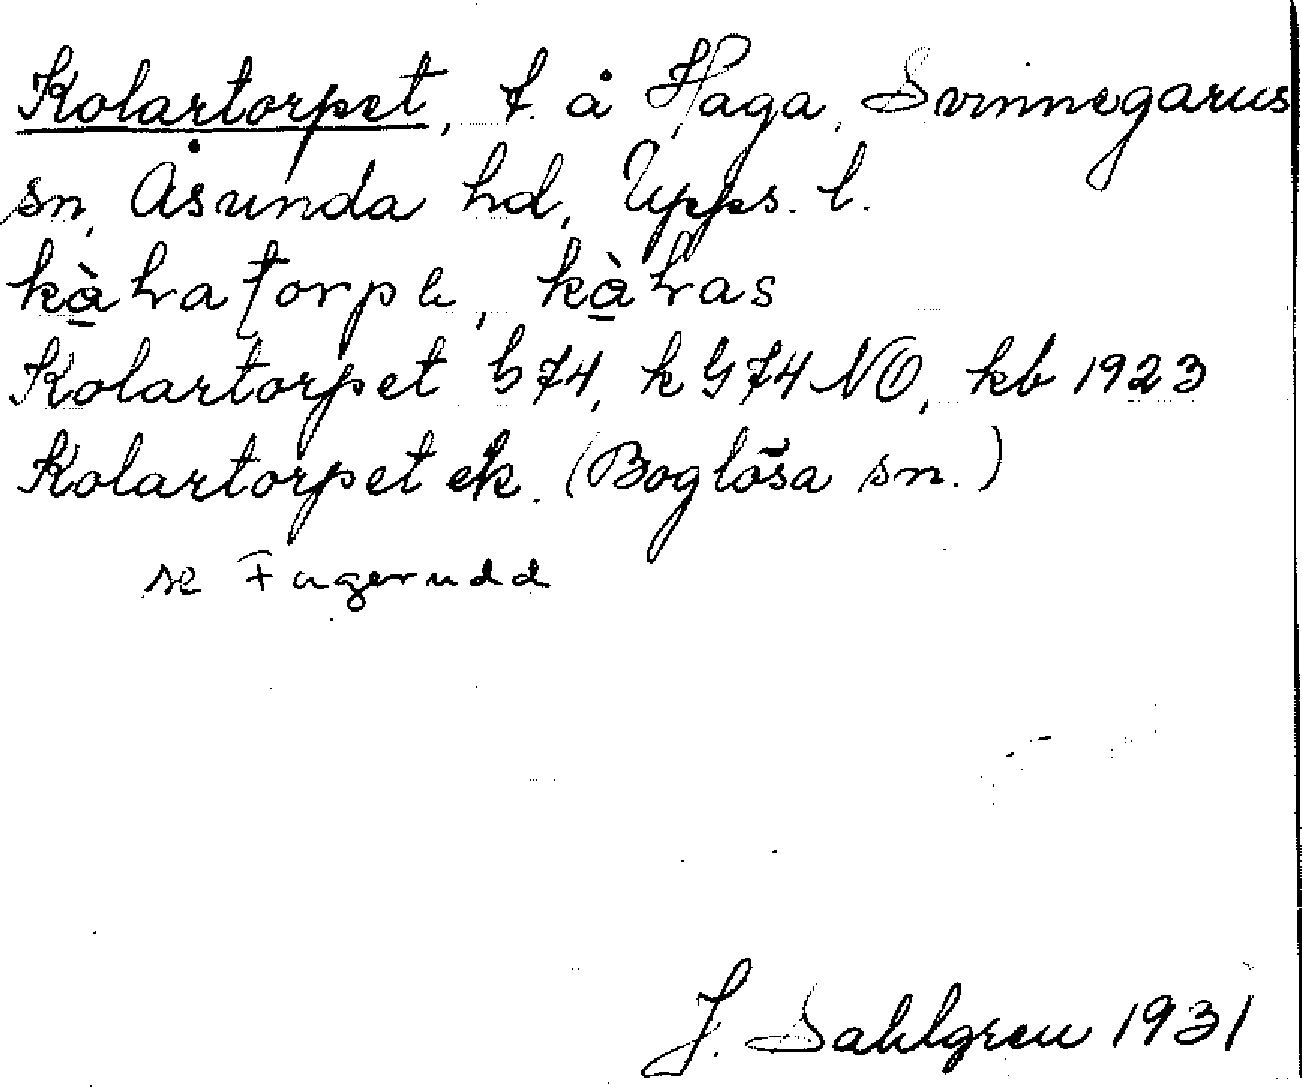 Kolartorpet, t. å Haga, Svinnegarns
sn, Åsunda hd, Upps. l.
kàlratorpe, kàlras
Kolartorpet G74, k G74 NO, kb 1923
Kolartorpet ek. (Boglösa sn.)
se Fagerudd
J. Sahlgren 1931